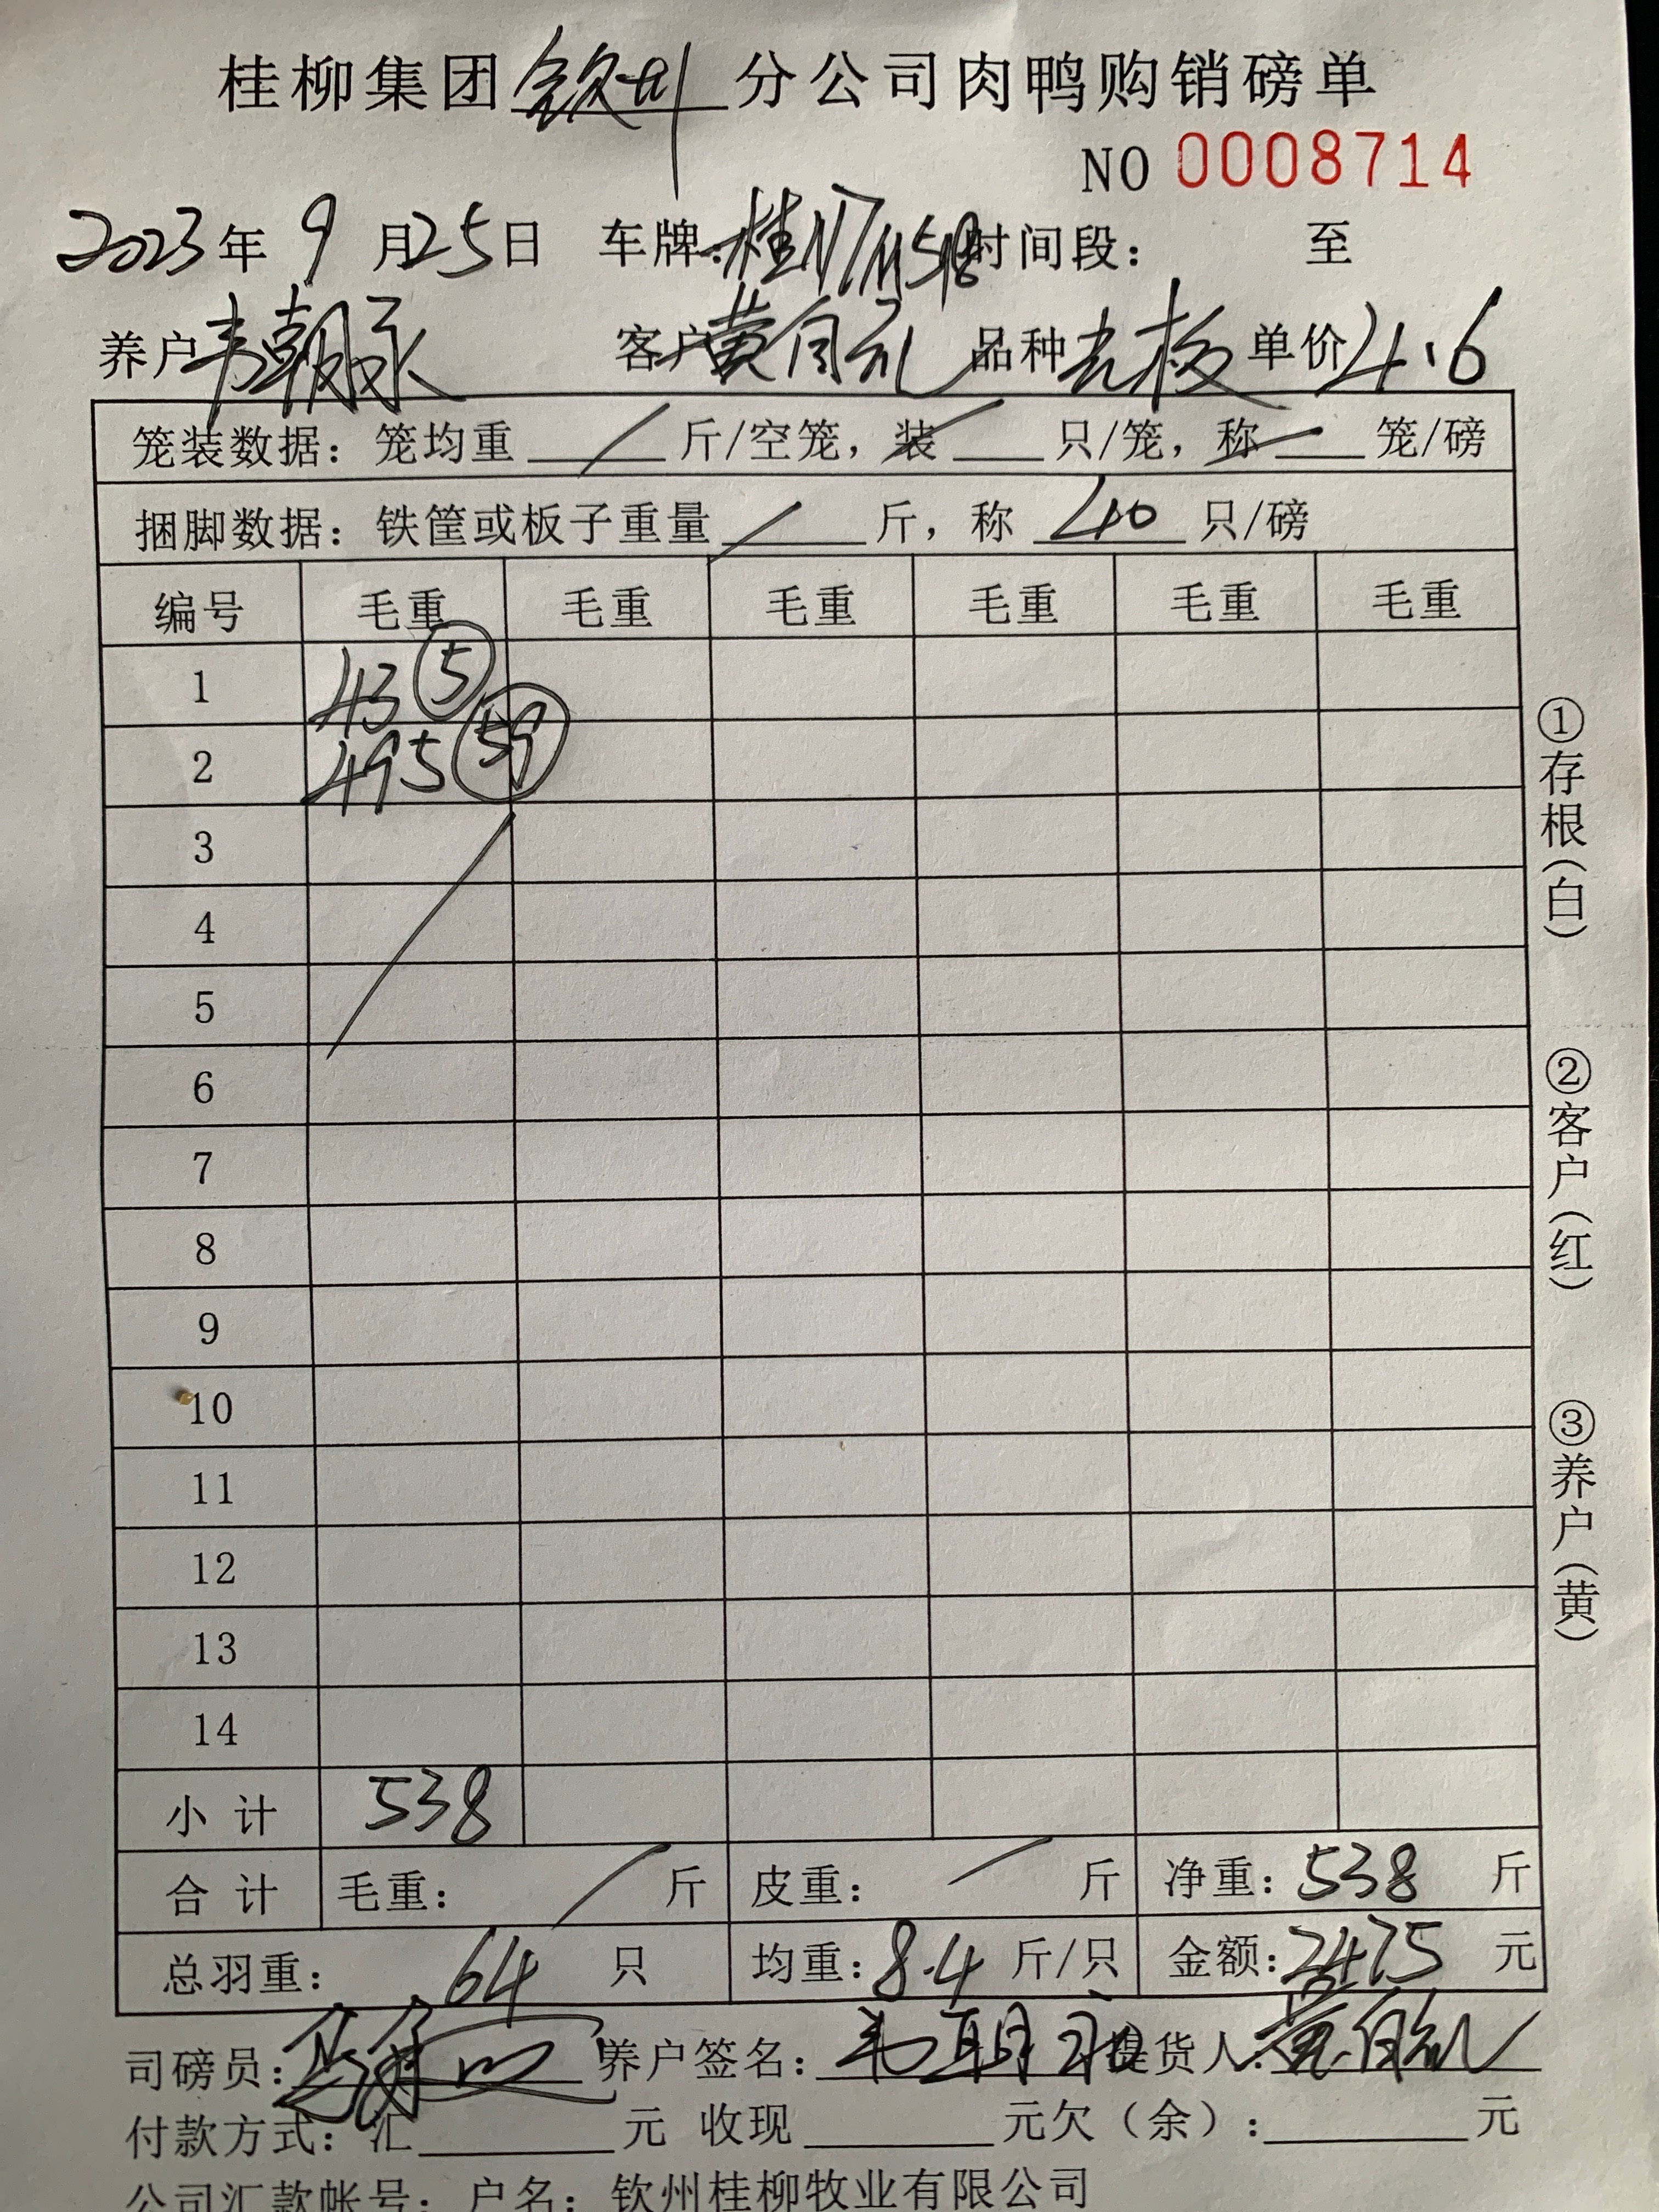 桂柳集团钦州分公司肉鸭购销磅单
NO 0008714
2023年9月25日 车牌: 桂N7M518 时间段: 至
养户韦朝永 客户黄自 品种 单价4.6
笼装数据: 笼均重 / 斤/空笼, 装 / 只/笼, 称 / 笼/磅
捆脚数据: 铁筐或板子重量 / 斤, 称 40 只/磅
编号 毛重 毛重 毛重 毛重 毛重 毛重
1 43 ⑤
2 495 59
3
4
5
6
7
8
9
10
11
12
13
14
小计 538
合计 毛重: / 斤 皮重: / 斤 净重: 538 斤
总羽重: 64 只 均重: 8.4 斤/只 金额: 2475 元
司磅员: 养户签名: 韦朝永 提货人: 黄自
付款方式: 汇 元 收现 元 欠(余): 元
公司汇款帐号: 户名: 钦州桂柳牧业有限公司
①存根(白)
②客户(红)
③养户(黄)